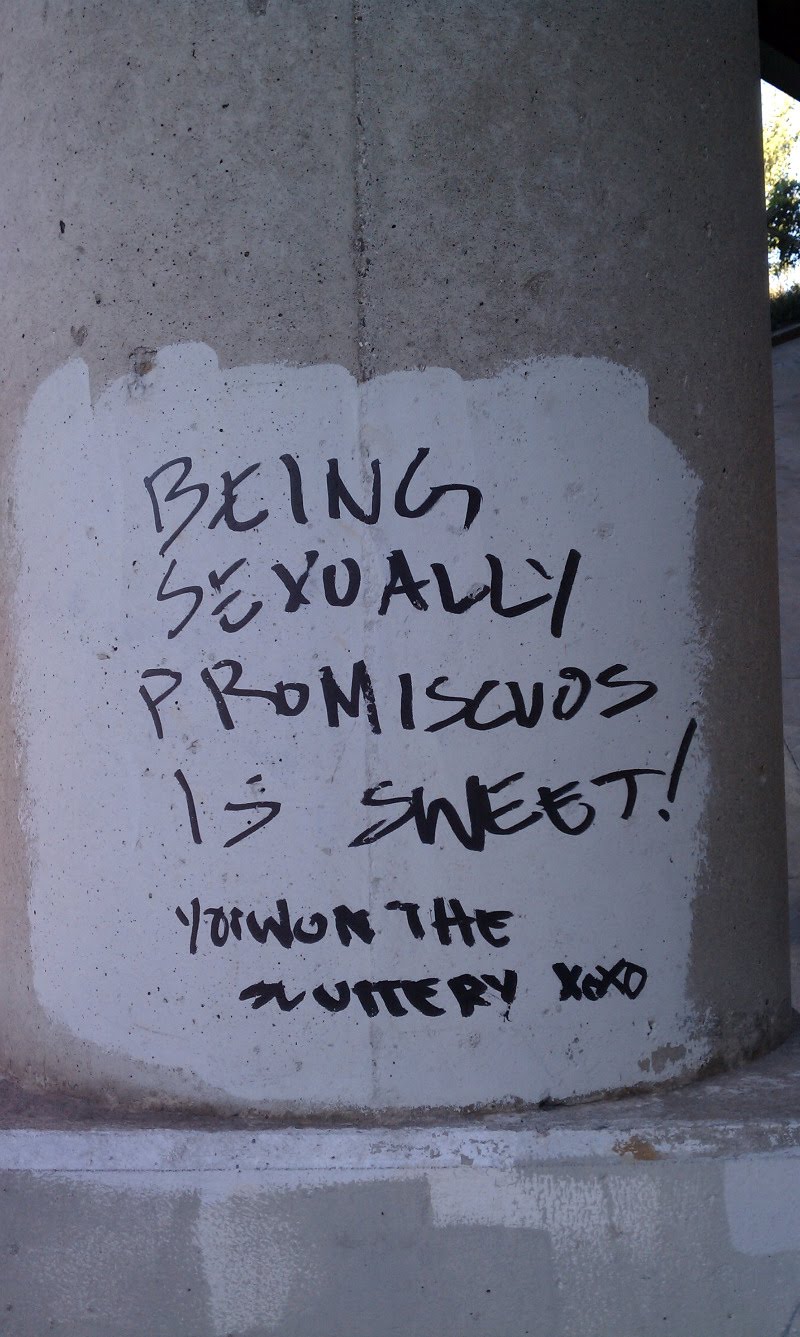 BEING
SEXUALLY
PROMISCUOS
IS SWEET!
YOU WON THE
SLUTTERY XOXO